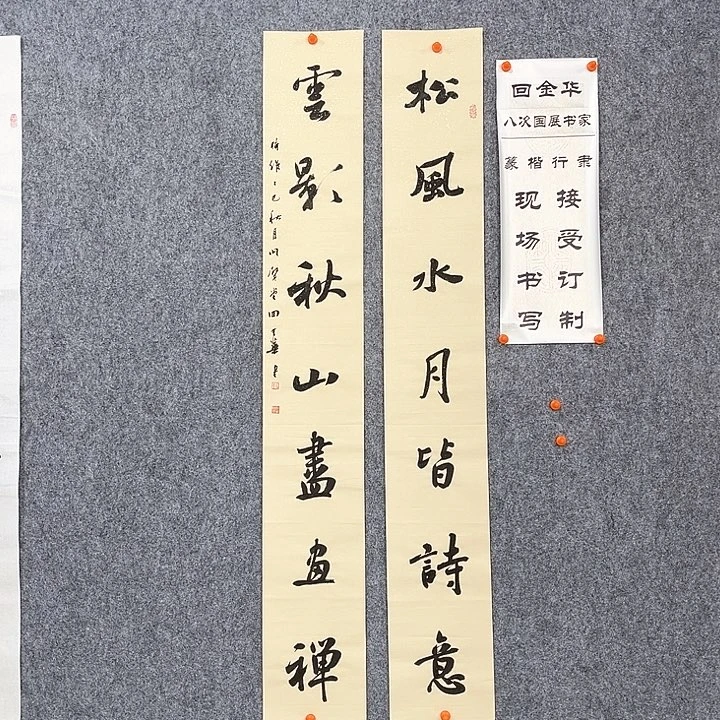 回金华
八次国展书家
篆楷行隶
接受订制
现场书写
松風水月皆詩意
雲影秋山盡画禅
乙巳秋月